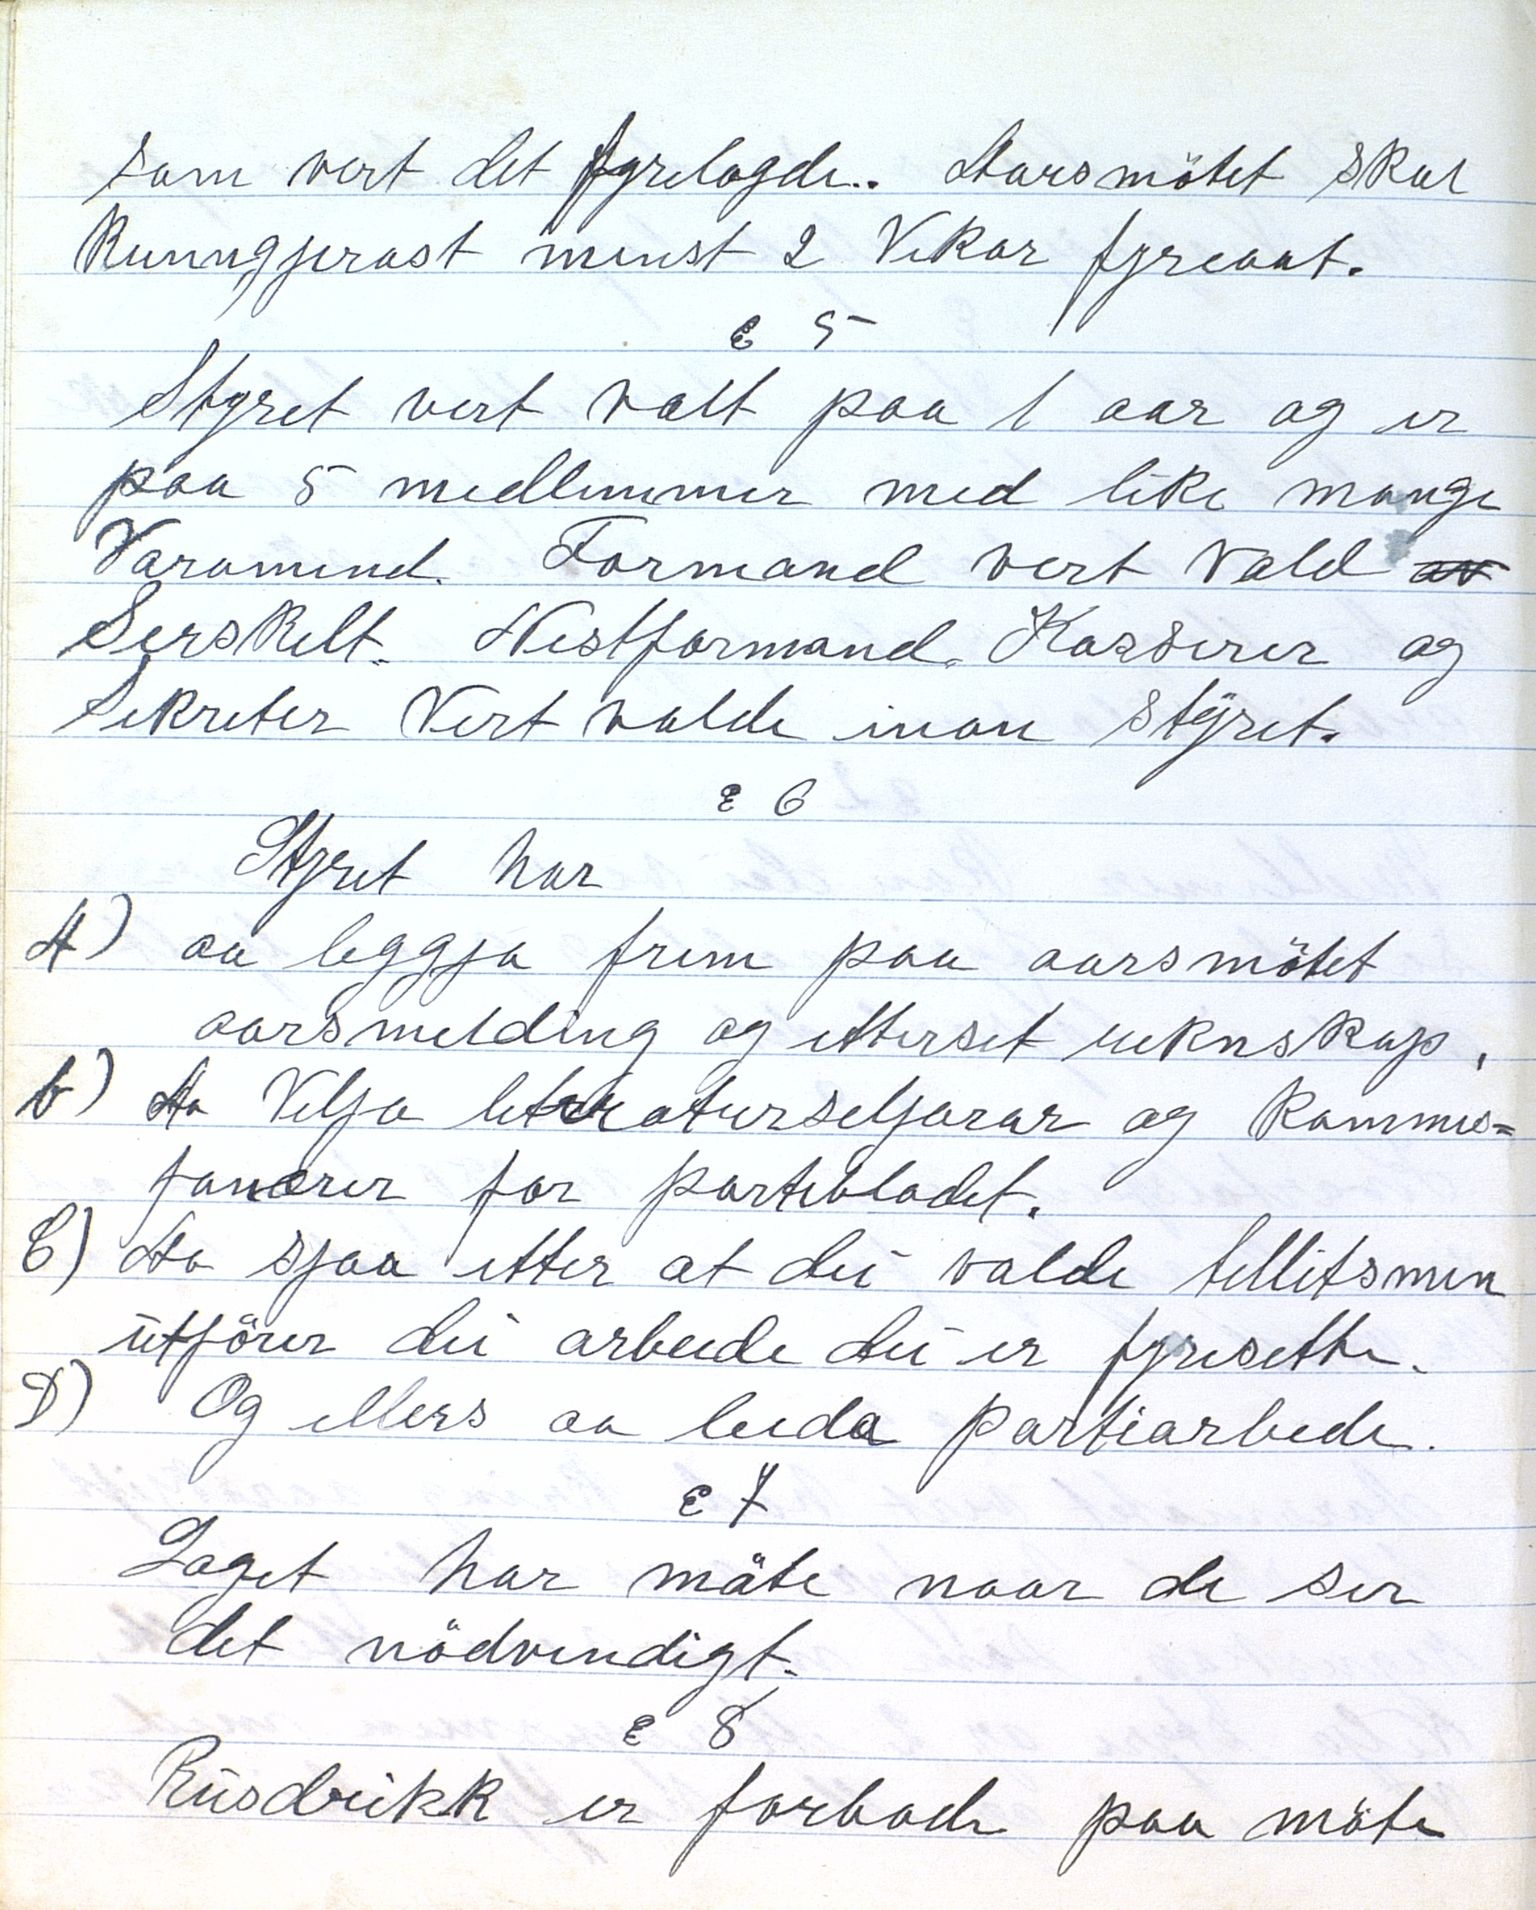 som vert det fyrelagde. Aarsmötet skal
Kunngjerast minst 2 Vikar fyreaat.
§ 5
Styret vert valt paa 1 aar og er
paa 5 medlemmer med like mange
Varamend. Formand vert Vald av
Serskilt. Nestformand. Kasserer og
Sekreter Vert valde inan styret.
§ 6
Styret har
A) aa leggja frem paa aarsmötet
aarsmelding og etterset reknskap.
b) Aa Velja literaturseljarar og Kommis=
jonærer for partibladet.
C) Aa sjaa etter at dei valde tillitsmen
utförer dei arbeide dei er fyresette.
D) Og ellers aa leida partiarbeide.
§ 7
Laget har möte naar de ser
det nödvendigt.
§ 8
Rusdrikk er forbode paa möte